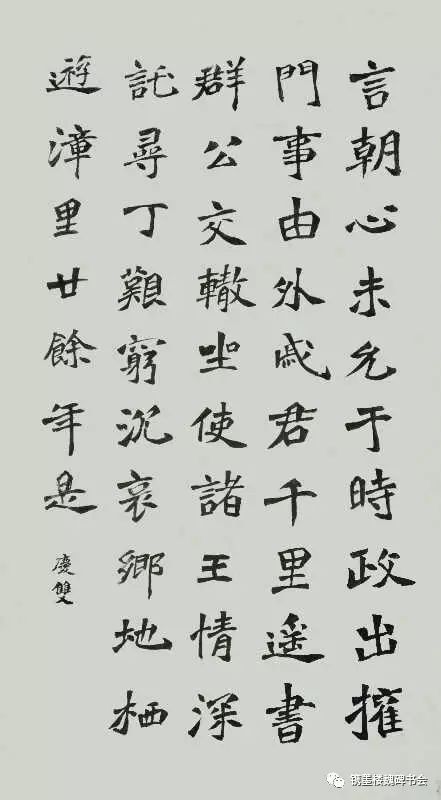 言朝心未允于時政出擁
門事由外戚君千里遥書
群公交轍坐使諸王情深
託尋丁艱窮沉哀鄉地栖
遊漳里廿餘年是
慶雙
锏墨楼魏碑书会